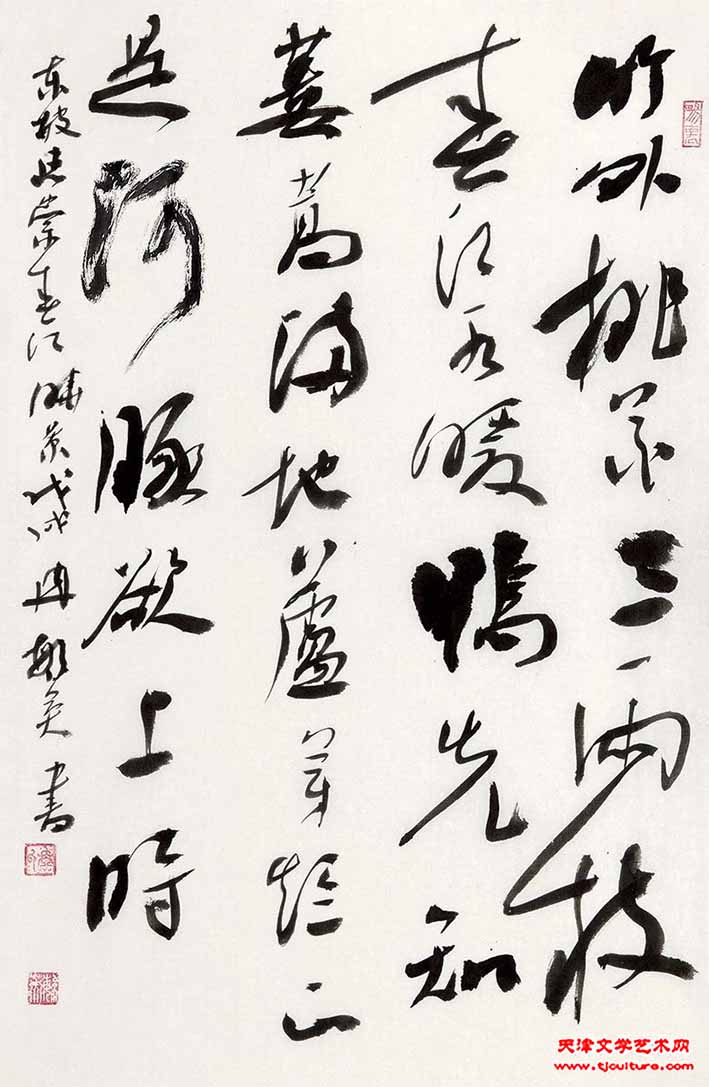 竹外桃花三兩枝
春江水暖鴨先知
蔞蒿滿地蘆芽短正
是河豚欲上時
東坡惠崇春江曉景戊戌冉繁英書
天津文学艺术网
www.tjculture.com